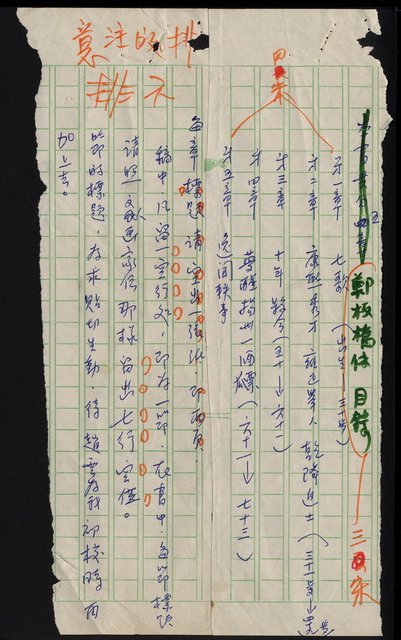 鄭板橋傳 目錄
三宋
四宋
第一章 七歌(出生—三十歲)
第二章 康熙秀才 雍正舉人 乾隆進士(三十一歲→
第三章 十年縣令(五十→六十一)
第四章 夢醒揚州一酒瓢(六十一→七十三)
第五章 逸聞軼事
排版注意
排 六
每章標題請空出一張紙,即兩頁。
稿中凡留空行處,即為一節,在書中每節標題
請照 文 通 家傳那樣留出七行空位。
節的標題,為求貼切生動,待趙雲為我初校時再
加上去。